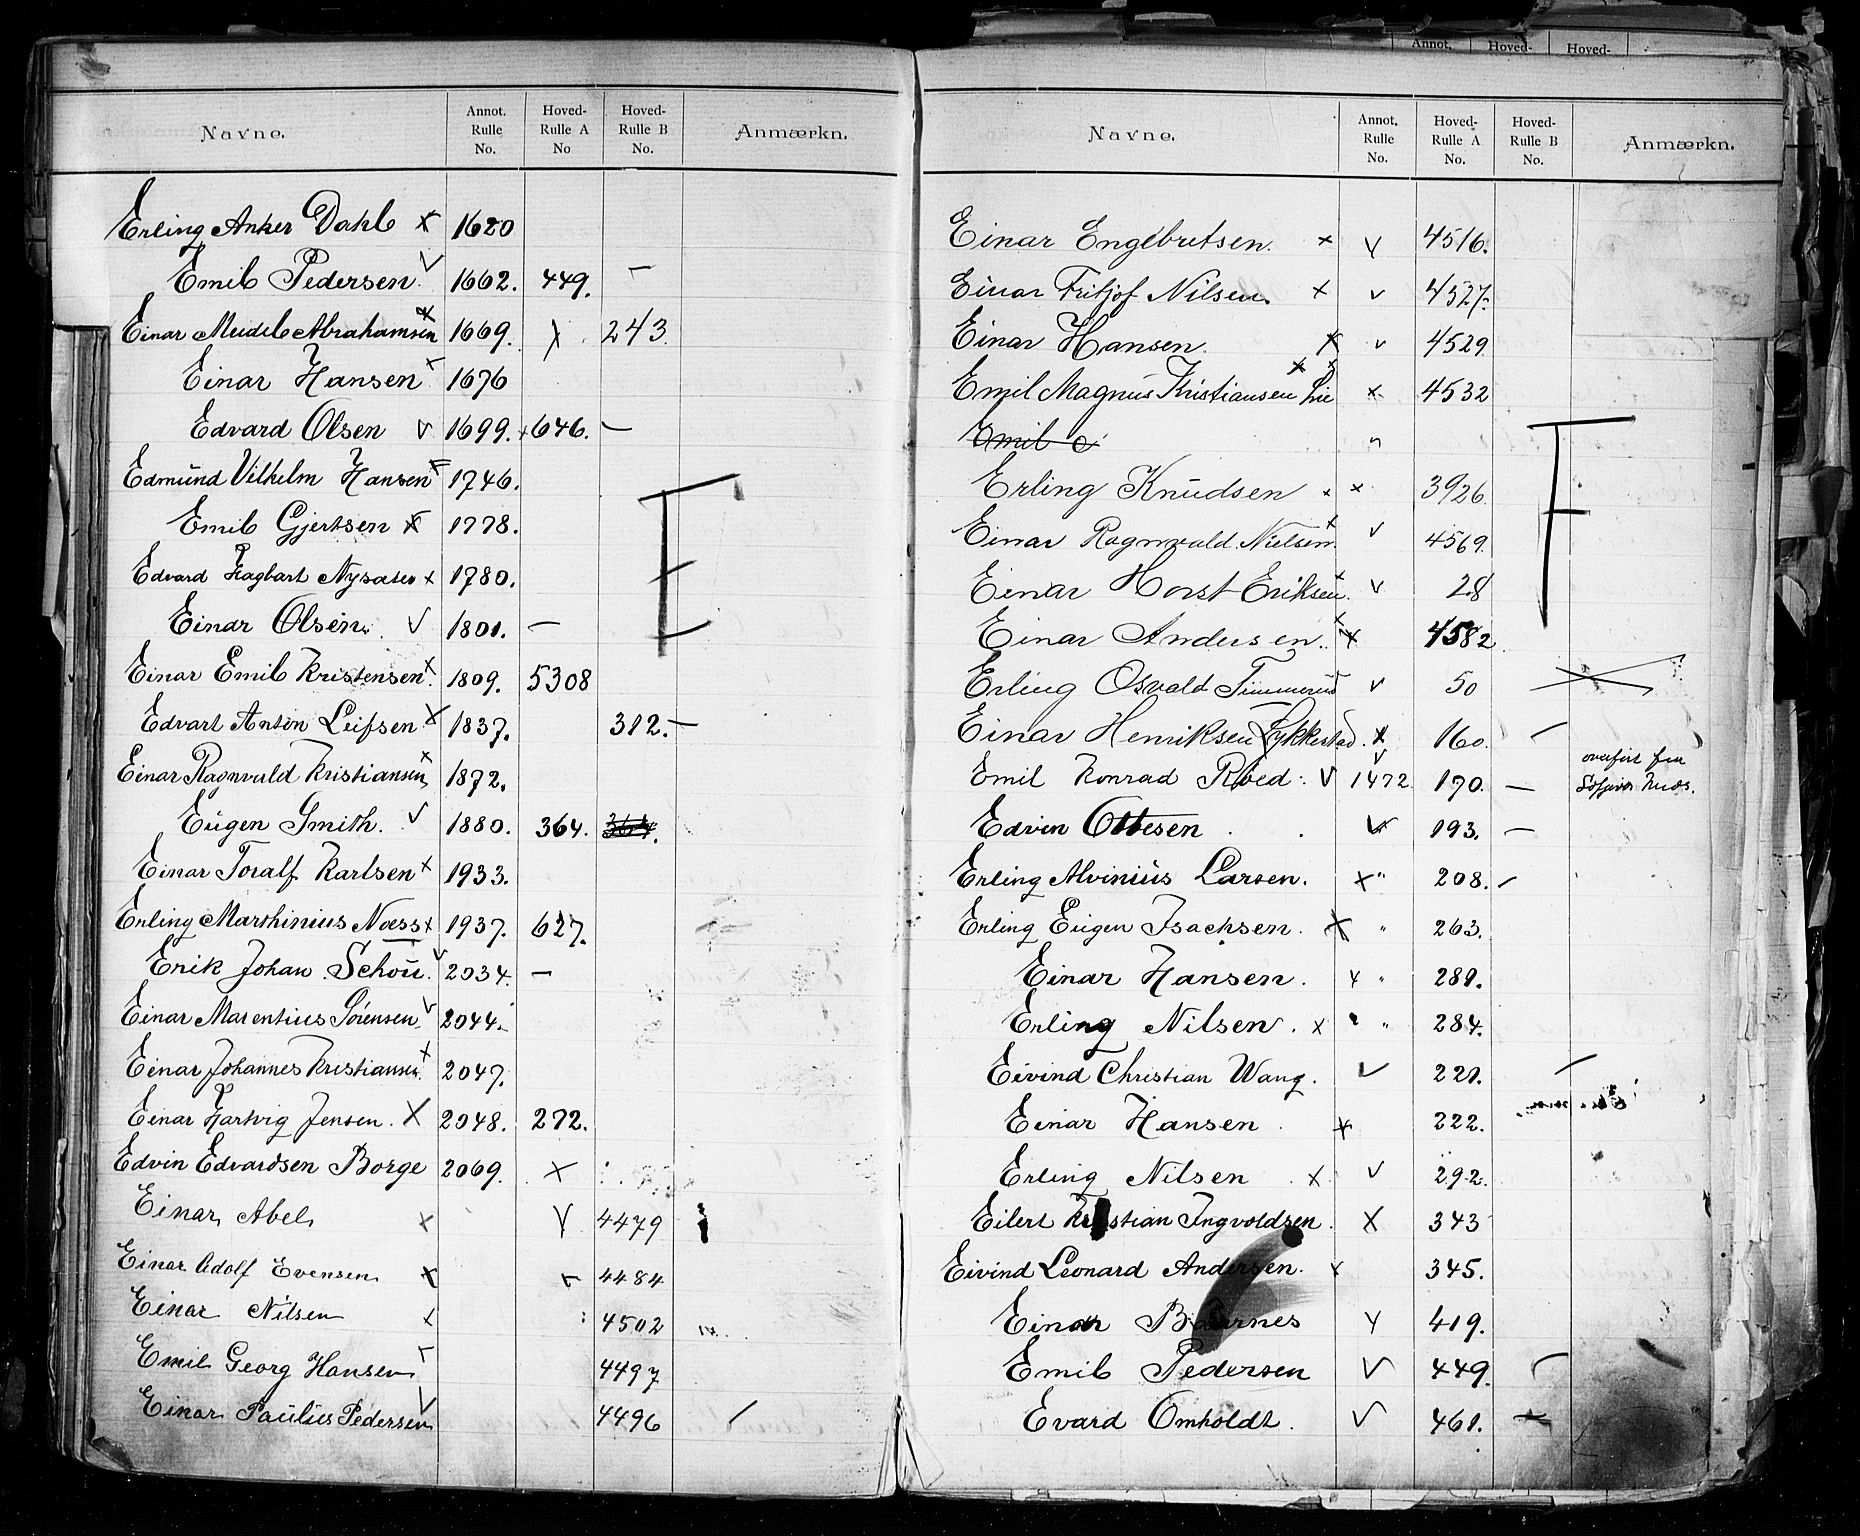 Navne. Annot. Rulle No. Hoved-Rulle A No Hoved-Rulle B No. Anmærkn.
Erling Anker Dahl x 1620
Emil Pedersen v 1662. 449. —
Einar Meidel Abrahamsen x 1669. x 243
Einar Hansen 1676
Edvard Olsen v 1699. x 646. —
Edmund Vilhelm Hansen x 1746.
Emil Gjertsen x 1778.
Edvard Hagbart x 1780.
Einar Olsen. v 1801. —
Einar Emil Kristensen x 1809. 5308
Edvart Anton Leifsen x 1837. 312. —
Einar Ragnvald Kristiansen x 1872.
Eugen Smith. v 1880. 364. 364.
Einar Toralf Karlsen x 1933.
Erling Marthinius Næss x 1937. 627.
Erik Johan Schou. v 2034. —
Einar Marentius Sørensen v 2044. -
Einar Johannes Kristiansen x 2047.
Einar Hartvig Jensen. x 2048. 272.
Edvin Edvardsen Borge 2069. x
Einar Abel x v 4479
Einar Adolf Evensen x x 4484
Einar Nilsen x 4502
Emil Georg Hansen 4497
Einar Paulius Pedersen v 4496
E
Annot. Hoved- Hoved-
Navne. Annot. Rulle No. Hoved-Rulle A No. Hoved-Rulle B No. Anmærkn.
Einar Engebretsen. x v 4516.
Einar Fritjof Nilsen. x v 4527.
Einar Hansen. x v 4529
Emil Magnus Kristiansen Lie x x 4532
Emil
Erling Knudsen x x 3926.
Einar Ragnvald Nielsen x v 4569.
Einar Horst Eriksen. x v 28
Einar Andersen. x x 4582
Erling Osvald Timmerud v 50
Einar Henriksen Lykkestad. x 160. —
Emil Konrad Röed. v 1472 170. — overført fra
Edvin Ottesen v 193. —
Erling Alvinius Larsen. x " 208. —
Erling Eugen Isachsen. x " 263.
Einar Hansen. x " 281.
Erling Nilsen. x " 284.
Eivind Christian Wang. v 221. —
Einar Hansen x 222.
Erling Nilsen x v 292.
Eilert Kristian Ingvoldsen. x 343
Eivind Leonard Andersen. x 345.
Einar Bjarnes x 419.
Emil Pedersen v 449. —
Evard Omholdt. v 461. —
F